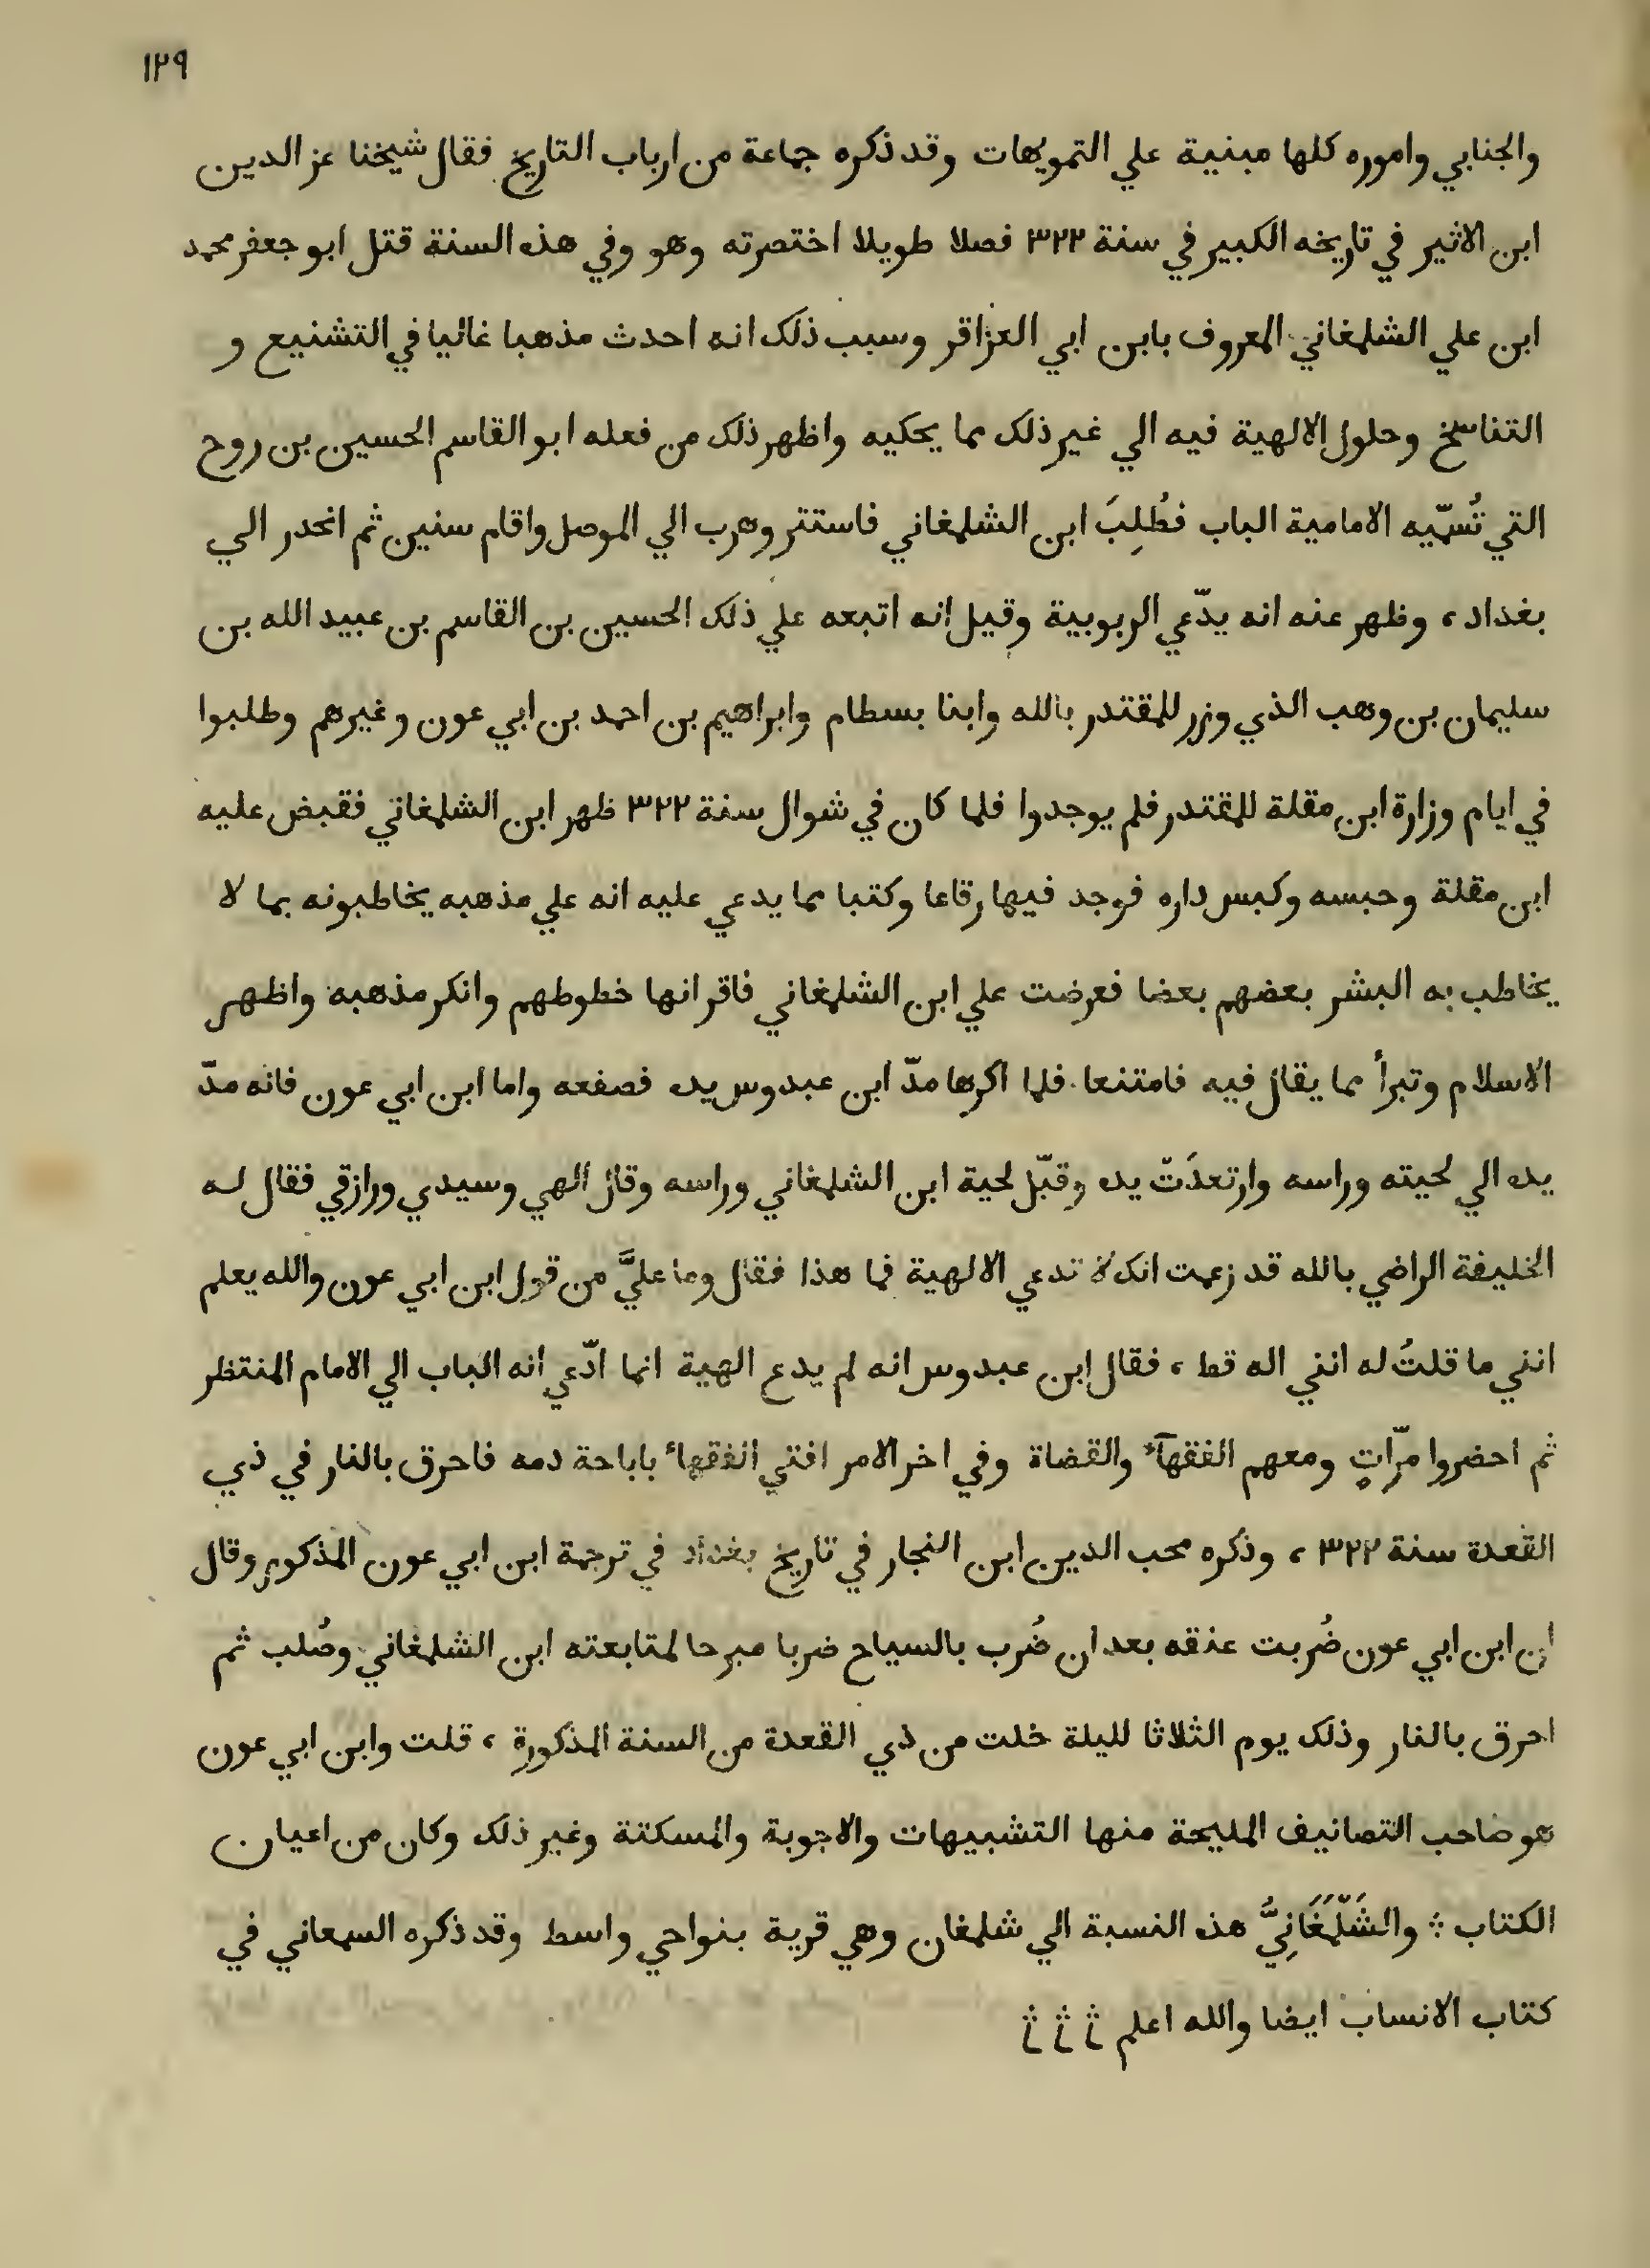 ١٢٩
والجنابي واموره كلها مبنية علي التمويهات وقد ذكره جماعة من ارباب التاريخ فقال شيخنا عز الدين
ابن الاثير في تاريخه الكبير في سنة ٣٢٢ فصلا طويلا اختصرته وهو وفي هذه السنة قتل ابو جعفر محمد
ابن علي الشلمغاني المعروف بابن ابي العزاقر وسبب ذلك انه احدث مذهبا غاليا في التشنيع و
التناسخ وحلول الالهية فيه الي غير ذلك مما يحكيه واظهر ذلك من فعله ابو القاسم الحسين بن روح
التي تُسمّيه الامامية الباب فطُلِبَ ابن الشلمغاني فاستتر وهرب الي الموصل واقام سنين ثم انحدر الي
بغداد ، وظهر عنه انه يدّعي الربوبية وقيل انه اتبعه علي ذلك الحسين بن القاسم بن عبيد الله بن
سليمان بن وهب الذي وزر للمقتدر بالله وابنا بسطام وابراهيم بن احمد بن ابي عون وغيرهم وطلبوا
في ايام وزارة ابن مقلة للمقتدر فلم يوجدوا فلما كان في شوال سنة ٣٢٢ ظهر ابن الشلمغاني فقبض عليه
ابن مقلة وحبسه وكبس داره فوجد فيها رقاعا وكتبا مما يدعي عليه انه علي مذهبه يخاطبونه بما لا
يخاطب به البشر بعضهم بعضا فعرضت علي ابن الشلمغاني فاقر انها خطوطهم وانكر مذهبه واظهر
الاسلام وتبرأ مما يقال فيه فامتنعا فلما اكرها مدّ ابن عبدوس يده فصفعه واما ابن ابي عون فانه مدّ
يده الي لحيته وراسه وارتعدَتّ يده وقبّل لحية ابن الشلمغاني وراسه وقال الهي وسيدي ورازقي فقال له
الخليفة الراضي بالله قد زعمت انك لا تدعي الالهية فما هذا فقال وما عليَّ من قول ابن ابي عون والله يعلم
انني ما قلتُ له انني اله قط ، فقال ابن عبدوس انه لم يدع الهية انما ادّعي انه الباب الي الامام المنتظر
ثم احضروا مرّاتٍ ومعهم الفقهآء والقضاة وفي اخر الامر افتي الفقهاء باباحة دمه فاحرق بالنار في ذي
القعدة سنة ٣٢٢ ، وذكره محب الدين ابن النجار في تاريخ بغداد في ترجمة ابن ابي عون المذكور وقال
ان ابن ابي عون ضُربت عنقه بعد ان ضُرب بالسياح ضربا مبرحا لمتابعته ابن الشلمغاني وصُلب ثم
احرق بالنار وذلك يوم الثلاثا لليلة خلت من ذي القعدة من السنة المذكورة ، قلت وابن ابي عون
هو صاحب التصانيف المليحة منها التشبيهات والاجوبة والمسكتة وغير ذلك وكان من اعيان
الكتاب ؛ والشَّلْمَغَانِيُّ هذه النسبة الي شلمغان وهي قرية بنواحي واسط وقد ذكره السمعاني في
كتاب الانساب ايضا والله اعلم